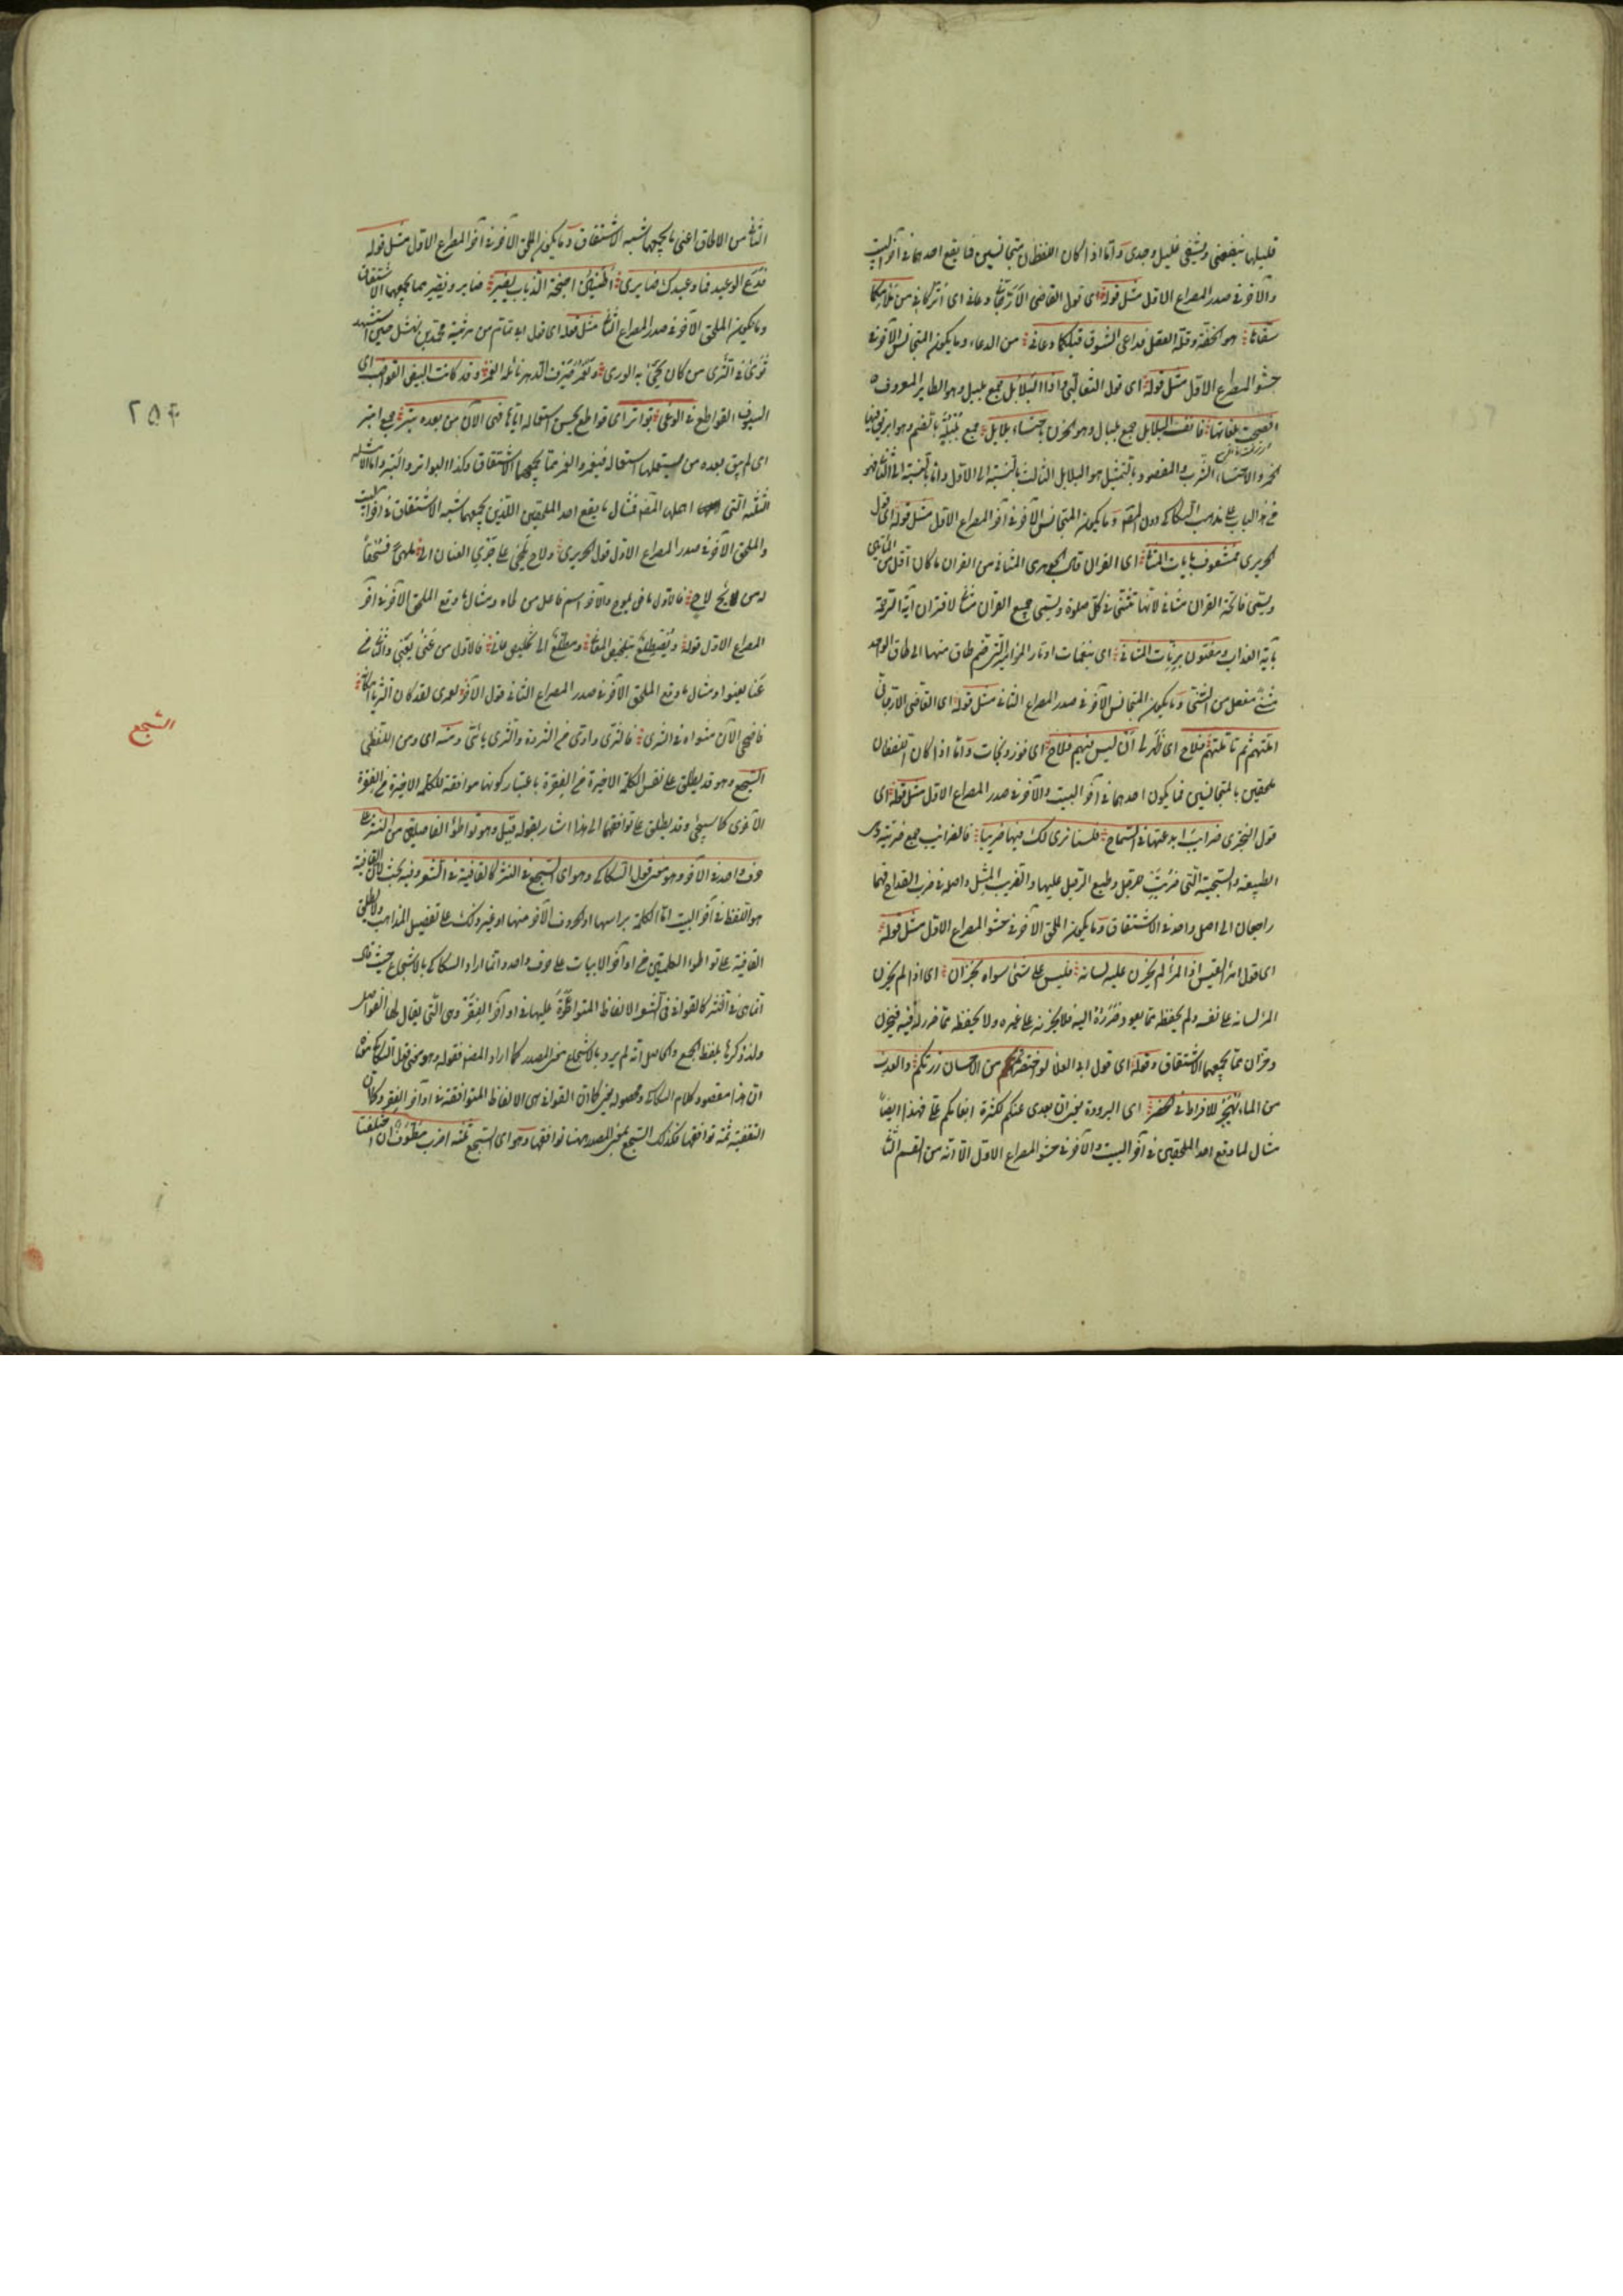 قليلها ينفعنى ويشفى غليل وجدى واما اذا كان اللفظان متجانسين فما يقع احدهما فى آخر البيت
والآخر فى صدر المصراع الاول مثل قوله اى قول القاضى الارجانى دعانى اى اتركانى من ملامكما
سفاها هو الخفة وقلة العقل فداعى الشوق قبلكما دعانى من الدعاء وما يكون المتجانس الآخر فى
حشو المصراع الاول مثل قوله اى قول الثعالبى واذا البلابل جمع بلبل وهو الطاير المعروف
افصحت بلغاتها فانف البلابل جمع بلبال وهو الحزن باحتساء بلابل جمع بلبلة بالضم وهو ابريق فيها
الخمر والاحتساء الشرب والمقصود بالتمثيل هو البلابل الثالث بالنسبة الى الاول واما بالنسبة الى الثانى فهو
من هذا الباب على مذهب السكاكى دون المصنف وما يكون المتجانس الآخر فى آخر المصراع الاول مثل قوله اى قول
الحريرى فمشغوف بايات المثانى اى القران قال الجوهرى المثانى من القران ما كان اقل من المأتين
ويسمى فاتحة القران مثانى لانها تثنى فى كل صلوة ويسمى جميع القران مثانى لاقتران آية الرحمة
باية العذاب ومفتون برنات المثانى اى بنغمات اوتار المزامير التى ضم طاق منها الى طاق الواحد
مثنى مفعل من الثنى وما يكون المتجانس الآخر فى صدر المصراع الثانى مثل قوله اى القاضى الارجانى
املتهم ثم تأملتهم فلاح اى ظهر لى ان ليس فيهم فلاح اى فوز ونجات واما اذا كان اللفظان
ملحقين بالمتجانسين فما يكون احدهما فى آخر البيت والآخر فى صدر المصراع الاول مثل قوله اى
قول البحترى ضرايب ابدعتها فى السماح فلسنا نرى لك فيها ضريبا فالضرايب جمع ضريبة وهى
الطبيعة والسجية التى ضربت للرجل وطبع الرجل عليها والضريب المثل واصله فى ضرب القداح فهما
راجعان الى اصل واحد فى الاشتقاق وما يكون الملحق الآخر فى حشو المصراع الاول مثل قوله
اى قول امرئ القيس اذا المرء لم يخزن عليه لسانه فليس على شئ سواه بخزان اى اذا لم يخزن
المرء لسانه على نفسه ولم يحفظه مما يعود ضرره اليه فلا يخزنه على غيره ولا يحفظه مما ضرر له فيه فيخزن
وخزان مما يجمعهما الاشتقاق وقوله اى قول ابى العلا لو اختصرتم من الاحسان زرتكم والعذب
من الماء يهجر للافراط فى الخصر اى البرودة يعنى ان بعدى عنكم لكثرة انعامكم على فهذا ايضا
مثال لما وقع احد الملحقين فى آخر البيت والآخر فى حشو المصراع الاول الا انه من القسم الثانى
الثانى من الالحاق اعنى ما يجمعهما شبه الاشتقاق وما يكون الملحق الآخر فى آخر المصراع الاول مثل قوله
فدع الوعيد فما وعيدك ضايرى اطنين اجنحة الذباب يضير فضاير ويضير مما يجمعهما الاشتقاق
وما يكون الملحق الآخر فى صدر المصراع الثانى مثل قوله اى قول ابى تمام من مرثية محمد بن نهشل حين استشهد
ثوى فى الثرى من كان يحيى به الورى ويغمر صرف الدهر نائله الغمر وقد كانت البيض القواضب اى
السيوف القواطع فى الوغى بواتر اى قواطع لحسن استعماله اياها فهى الآن من بعده بتر جمع ابتر
اى لم يبق بعده من يستعملها استعماله فيغمر والغمر مما يجمعهما الاشتقاق وكذا البواتر والبتر واما الامثلة
الثلثة التى اهملها المصنف فمثال ما يقع احد الملحقين اللذين يجمعهما شبه الاشتقاق فى آخر البيت
والملحق الآخر فى صدر المصراع الاول قول الحريرى ولاح يلحى على جرى العنان الى ملهى فسحقا
له من لايح لاح فالاول ماض يلوح والآخر اسم فاعل من لحاه ومثال ما وقع الملحق الآخر فى آخر
المصراع الاول قوله ومضطلع بتلخيص المعانى ومطلع الى تخليص عانى فالاول من عنى يعنى والثانى من
عنا يعنو ومثال ما وقع الملحق الآخر فى صدر المصراع الثانى قول الآخر لعمرى لقد كان الثريا مكانه
فاضحى الآن مثواه فى الثرى فالثرى واوى من الثروة والثرى يائى ومنه اى ومن اللفظى
السجع وهو قد يطلق على نفس الكلمة الاخيرة من الفقرة باعتبار كونها موافقة للكلمة الاخيرة من الفقرة
الاخرى كما سيجئ وقد يطلق على توافقهما الى هذا اشار بقوله قيل وهو تواطؤ الفاصلتين من النثر على
حرف واحد فى الآخر وهو معنى قول السكاكى وهو اى السجع فى النثر كالقافية فى الشعر وفيه بحث لان القافية
هو اللفظ فى آخر البيت اما الكلمة برأسها او الحروف الآخر منها او غير ذلك على تفصيل المذاهب ولا يطلق
القافية على تواطؤ الكلمتين من اواخر الابيات على حرف واحد وانما اراد السكاكى بالاسجاع حيث قال
انما هى فى النثر كالقوافى فى الشعر الالفاظ المتواطئة عليها فى اواخر الفقر وهى التى يقال لها الفواصل
ولذا ذكرها بلفظ الجمع والحاصل انه لم يرد بالاسجاع معنى المصدر كما اراد المصنف فقوله وهو معنى قول السكاكى معناه
ان هذا مقصود كلام السكاكى ومحصوله يعنى كما ان القوافى هى الالفاظ المتوافقة فى اواخر الفقر وكما ان
التقفية ثمة توافقها فكذلك السجع بمعنى المصدر ههنا توافقها وهو اى السجع ثلثة اضرب مطرف ان اختلفتا
٢٥٤
السجع